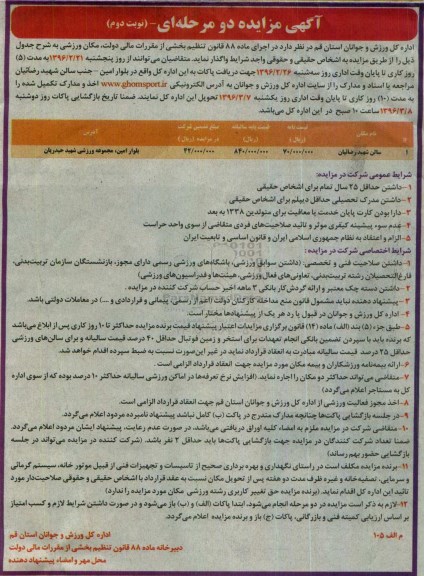 آگهی مزایده دو مرحله‌ای - (نوبت دوم)
اداره کل ورزش و جوانان استان قم در نظر دارد در اجرای ماده ۸۸ قانون تنظیم بخشی از مقررات مالی دولت، مکان ورزشی به شرح جدول
ذیل را از طریق مزایده به اشخاص حقیقی و حقوقی واجد شرایط واگذار نماید. متقاضیان می‌توانند از روز پنجشنبه ۱۳۹۶/۲/۲۱ به مدت (۵)
روز کاری تا پایان وقت اداری روز سه‌شنبه ۱۳۹۶/۲/۲۶ جهت دریافت پاکات به این اداره کل واقع در بلوار امین - جنب سالن شهید رضائیان
مراجعه یا اسناد و مدارک را از سایت اداره کل ورزش و جوانان به آدرس الکترونیکی www.ghomsport.ir اخذ و مدارک تکمیل شده را
به مدت (۱۰) روز کاری تا پایان وقت اداری روز یکشنبه ۱۳۹۶/۳/۷ تحویل این اداره کل نمایند. ضمنا تاریخ بازگشایی پاکات روز دوشنبه
۱۳۹۶/۳/۸ ساعت ۱۰ صبح در این اداره کل می‌باشد.
نام مکان قیمت پایه (ریال) قیمت پایه سالیانه (ریال) مبلغ تضمین شرکت در مزایده (ریال) آدرس
۱ سالن شهید رضائیان ۷۰/۰۰۰/۰۰۰ ۸۴۰/۰۰۰/۰۰۰ ۴۲/۰۰۰/۰۰۰ بلوار امین، مجموعه ورزشی شهید حیدریان
شرایط عمومی شرکت در مزایده:
۱-داشتن حداقل ۲۵ سال تمام برای اشخاص حقیقی
۲-داشتن مدرک تحصیلی حداقل دیپلم برای اشخاص حقیقی
۳-دارا بودن کارت پایان خدمت یا معافیت برای متولدین ۱۳۳۸ به بعد
۴-عدم سوء پیشینه کیفری موثر و تائید صلاحیت‌های فردی متقاضی از سوی واحد حراست
۵-التزام و اعتقاد به نظام جمهوری اسلامی ایران و قانون اساسی و تابعیت ایران
شرایط اختصاصی شرکت در مزایده:
۱-داشتن صلاحیت فنی و تخصصی: (داشتن سوابق ورزشی، باشگاه‌های ورزشی رسمی دارای مجوز، بازنشستگان سازمان تربیت‌بدنی،
فارغ‌التحصیلان رشته تربیت‌بدنی، تعاونی‌های فعال ورزشی، هیئت‌ها و فدراسیون‌های ورزشی)
۲-داشتن دسته چک معتبر و ارائه گردش کار بانکی ۳ ماهه اخیر حساب شرکت کننده در مزایده.
۳-پیشنهاد دهنده نباید مشمول قانون منع مداخله کارکنان دولت (اعم از رسمی، پیمانی و قراردادی و ...) در معاملات دولتی باشد.
۴-اداره کل ورزش و جوانان در قبول یا رد هر یک از پیشنهادها مختار است.
۵-طبق جزء (۵) بند (الف) ماده (۱۴) قانون برگزاری مزایدات اعتبار پیشنهاد قیمت برنده مزایده حداکثر تا ۱۰ روز کاری پس از ابلاغ می‌باشد
که برنده باید با سپردن تضمین بانکی انجام تعهدات برای استخر و زمین فوتبال حداقل ۴۰ درصد قیمت سالیانه و برای سالن‌های ورزشی
حداقل ۲۵ درصد قیمت سالیانه مبادرت به انعقاد قرارداد نماید در غیر این‌صورت نسبت به ضبط سپرده اقدام خواهد شد.
۶-ارائه بیمه‌نامه ورزشکاران و بیمه مکان مورد مزایده جهت انعقاد قرارداد الزامی است.
۷-متقاضی می‌تواند حداکثر دو مکان را اجاره نماید. (افزایش نرخ تعرفه‌ها در اماکن ورزشی سالیانه حداکثر ۱۰ درصد بوده که از سوی اداره
کل به مستاجر اعلام می‌گردد)
۸-اخذ مجوز فعالیت ورزشی از اداره کل ورزش و جوانان استان قم جهت انعقاد قرارداد الزامی است.
۹-در جلسه بازگشایی پاکت‌ها چنانچه مدارک مندرج در پاکت (ب) کامل نباشد پیشنهاد نامبرده مردود اعلام می‌گردد.
۱۰-متقاضی شرکت در مزایده ملزم به امضاء کلیه اوراق دریافتی می‌باشد، در صورت عدم رعایت، پیشنهاد ایشان مردود اعلام می‌گردد.
ضمنا تعداد شرکت کنندگان در مزایده جهت بازگشایی پاکت‌ها باید حداقل ۲ نفر باشد. (شرکت کننده در مزایده می‌تواند در جلسه
بازگشایی حضور بهم رساند)
۱۱-برنده مزایده مکلف است در راستای نگهداری و بهره برداری صحیح از تاسیسات و تجهیزات فنی از قبیل موتور خانه، سیستم گرمائی
و سرمایی، تصفیه‌خانه و غیره ظرف مدت دو هفته پس از تحویل مکان نسبت به عقد قرارداد با اشخاص حقیقی و حقوقی صلاحیت‌دار مورد
تائید این اداره کل اقدام نماید. (برنده مزایده حق تغییر کاربری رشته ورزشی مکان مورد مزایده را ندارد)
۱۲-لازم به ذکر است مزایده در دو مرحله انجام می‌شود، ابتدا پاکات (الف) و (ب) باز می‌شود و در صورت داشتن شرایط لازم و کسب امتیاز
بر اساس ارزیابی کمیته فنی و بازرگانی، پاکات (ج) باز و برنده مزایده اعلام می‌گردد.
م الف ۱۰۵
اداره کل ورزش و جوانان استان قم
دبیرخانه ماده ۸۸ قانون تنظیم بخشی از مقررات مالی دولت
محل مهر و امضاء پیشنهاد دهنده